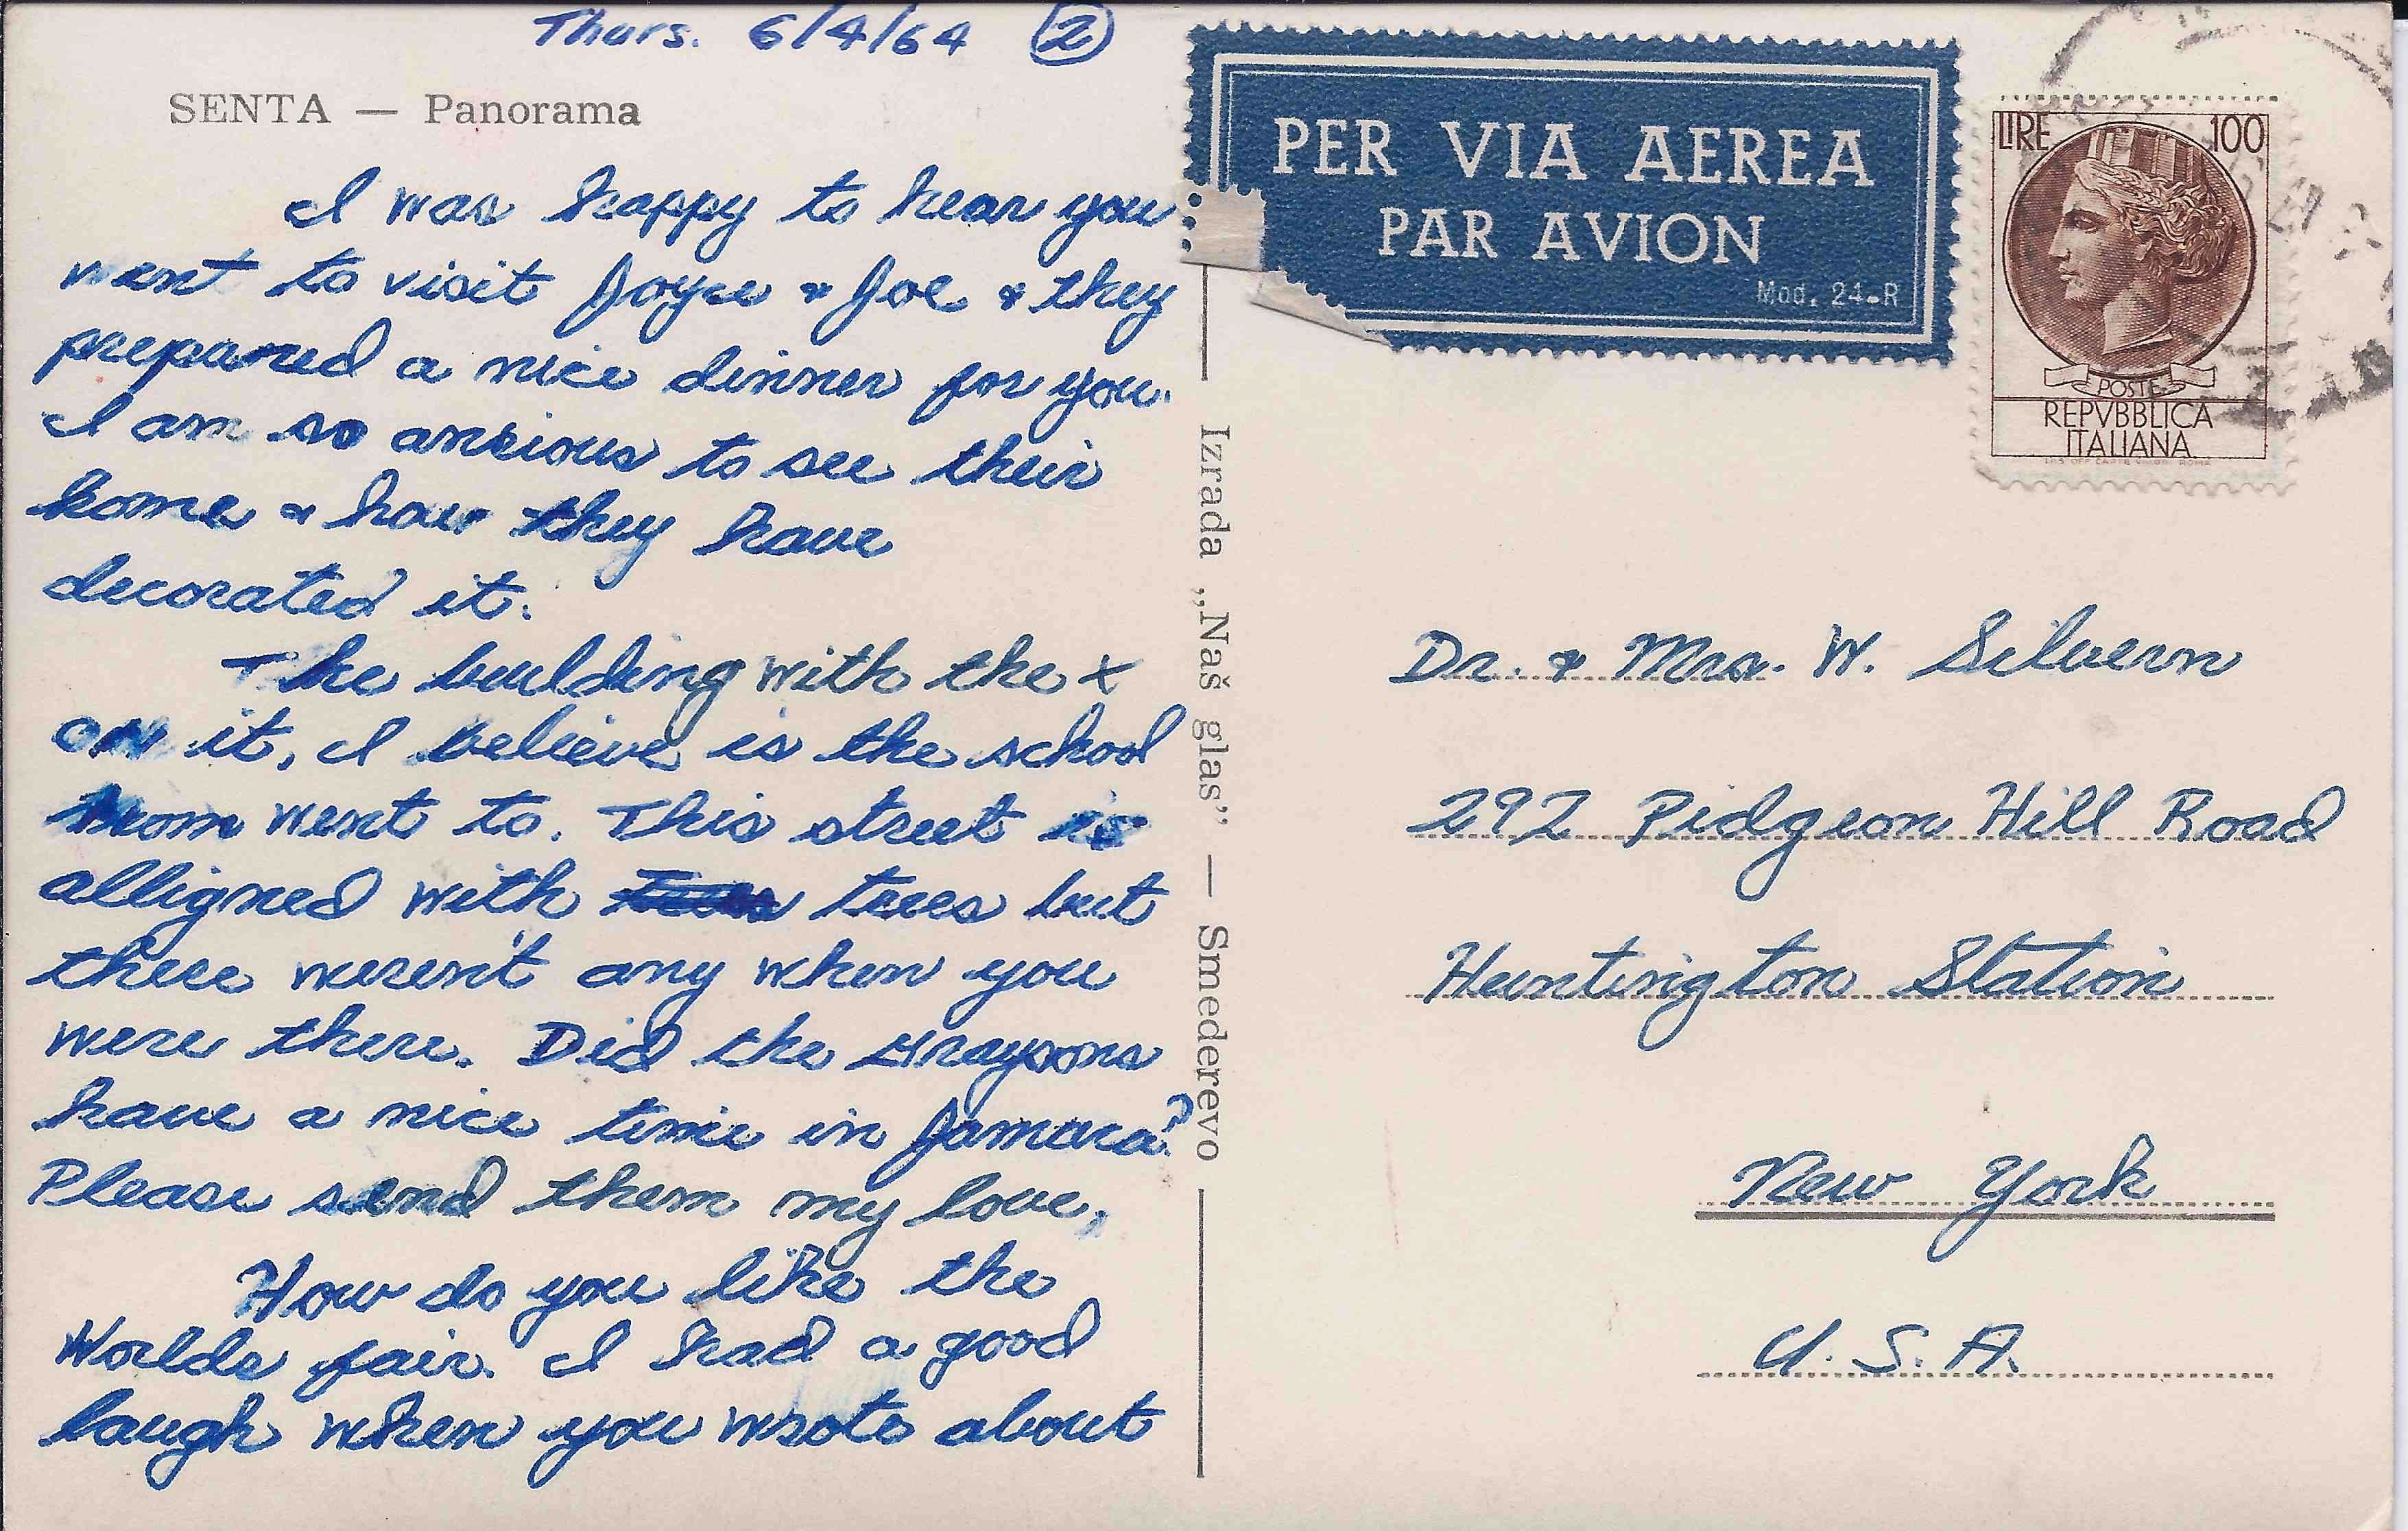 Thurs. 6/4/64 ②
SENTA — Panorama
I was happy to hear you
went to visit Joyce & Joe & they
prepared a nice dinner for you.
I am so anxious to see their
home & how they have
decorated it.
The building with the x
on it, I believe is the school
mom went to. This street is
alligned with trees but
there weren't any when you
were there. Did the Graysons
have a nice time in Jamaca?
Please send them my love,
How do you like the
Worlds fair. I had a good
laugh when you wrote about
Izrada „Naš glas” — Smederevo
PER VIA AEREA
PAR AVION
Mod. 24-R
LIRE 100
POSTE
REPVBBLICA
ITALIANA
Dr. & Mrs. W. Silvern
292 Pidgeon Hill Road
Huntington Station
New York
U.S.A.